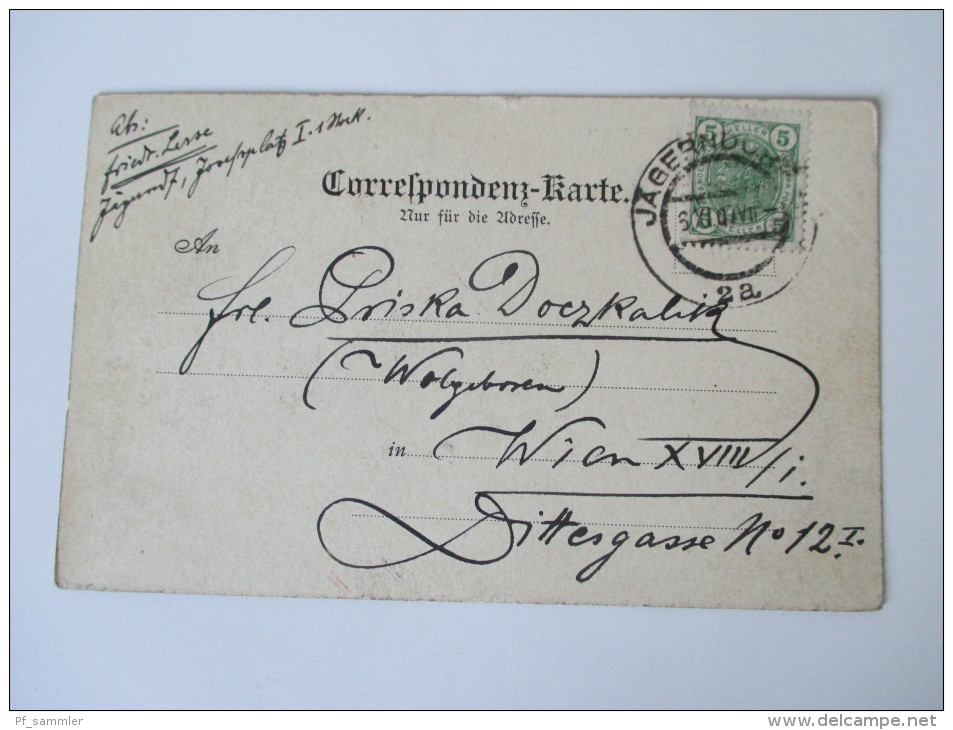 Abs:
Friedr. Lesse
I. 1 Stock.
Correspondenz-Karte.
Nur für die Adresse.
An
Frl. Priska Doczkalik
(Wolgeboren)
in Wien XVIII/1.
Dittesgasse No 12 I.
5 HELLER 5
JÄGERNDORF
2a
Pf_sammler
www.delcampe.net